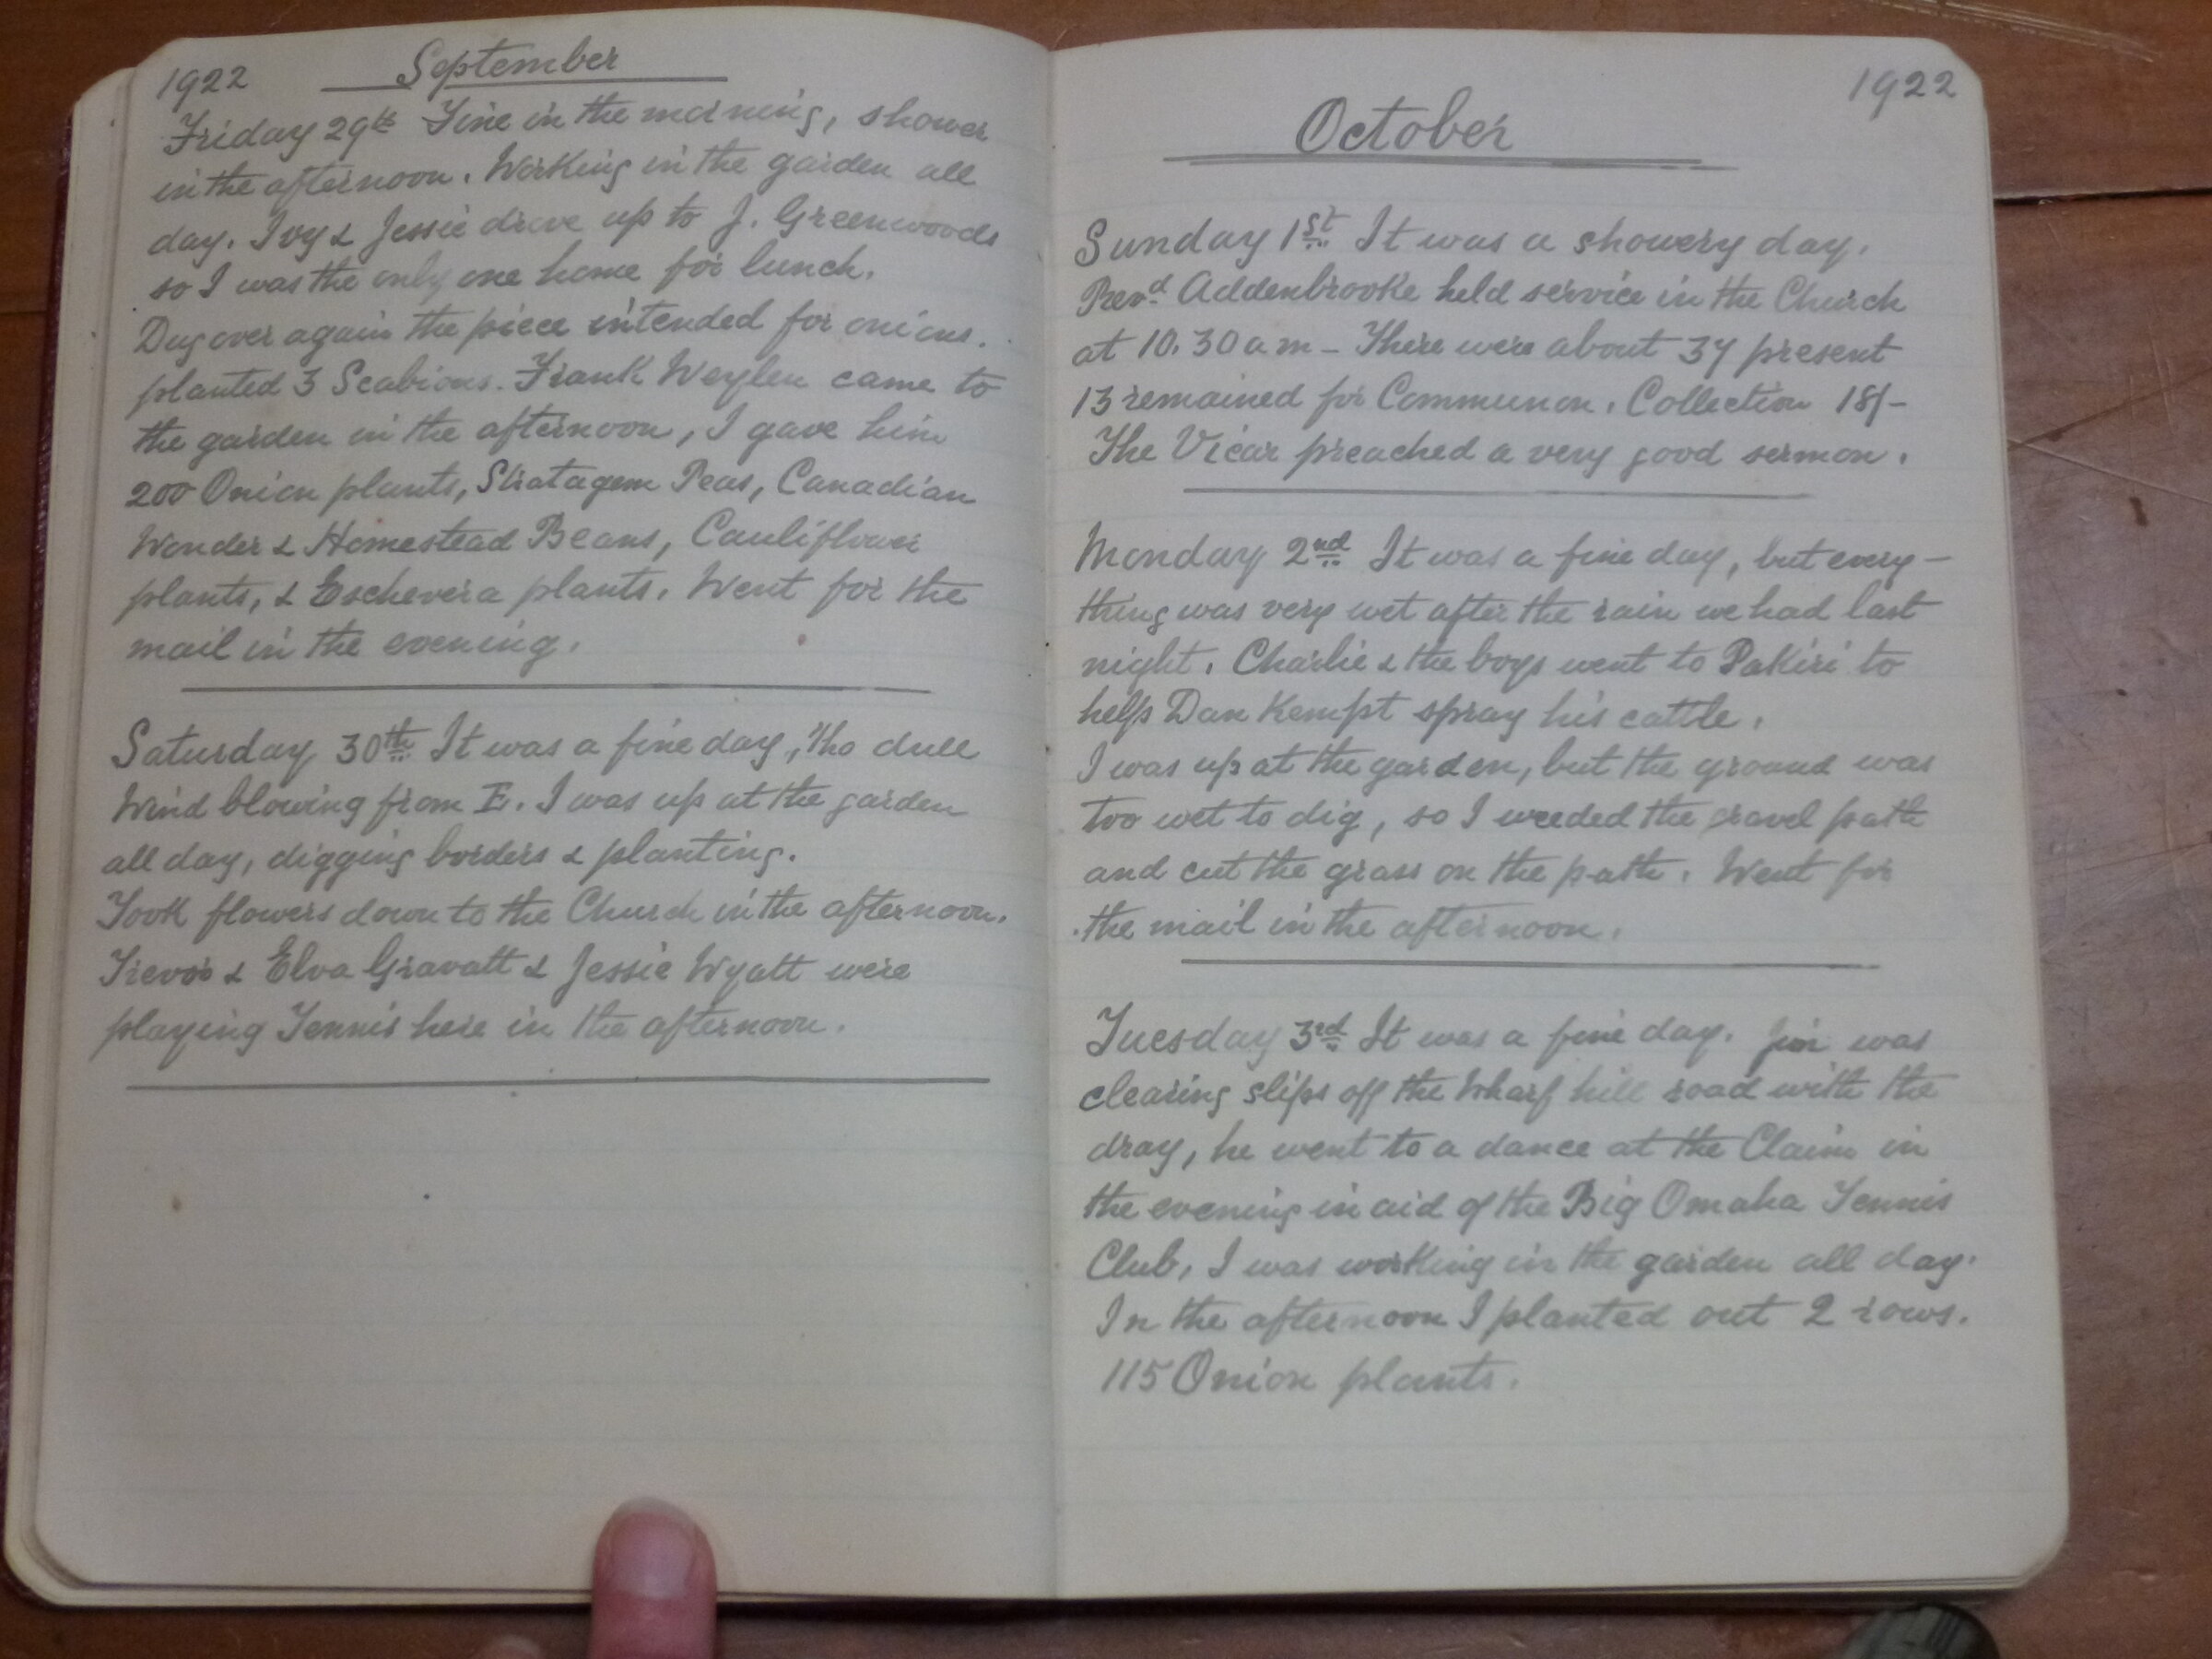 1922 September
Friday 29th Fine in the morning, shower
in the afternoon. Working in the garden all
day. Ivy & Jessie drove up to J. Greenwoods
so I was the only one home for lunch.
Dug over again the piece intended for onions.
planted 3 Scabious. Frank Weylen came to
the garden in the afternoon, I gave him
200 Onion plants, Stratagem Peas, Canadian
Wonder & Homestead Beans, Cauliflower
plants, & Eschevera plants. Went for the
mail in the evening.
Saturday 30th It was a fine day, tho dull
Wind blowing from E. I was up at the garden
all day, digging borders & planting.
Took flowers down to the Church in the afternoon.
Trevor & Elva Gravatt & Jessie Wyatt were
playing Tennis here in the afternoon.
1922
October
Sunday 1st It was a showery day.
Revd Addenbrooke held service in the Church
at 10.30 a m - There were about 37 present
13 remained for Communon. Collection 18/-
The Vicar preached a very good sermon.
Monday 2nd It was a fine day, but every-
thing was very wet after the rain we had last
night. Charlie & the boys went to Pakiri to
help Dan Kempt spray his cattle.
I was up at the garden, but the ground was
too wet to dig, so I weeded the gravel path
and cut the grass on the path. Went for
the mail in the afternoon.
Tuesday 3rd It was a fine day. Jim was
clearing slips off the Wharf hill road with the
dray, he went to a dance at the Claim in
the evening in aid of the Big Omaha Tennis
Club, I was working in the garden all day.
In the afternoon I planted out 2 rows.
115 Onion plants.